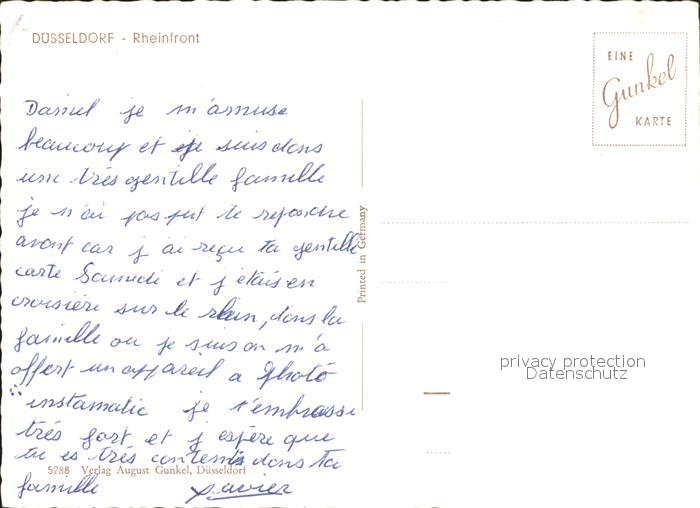 DÜSSELDORF - Rheinfront
EINE
Gunkel
KARTE
Daniel je m'amuse
beaucoup et je suis dans
une très gentille famille
je n'ai pas put te repondre
avant car j'ai reçu ta gentille
carte Samedi et j'étais en
croisière sur le rhin, dans la
famille ou je suis on m'a
offert un appareil a photo
instamatic je t'embrasse
très fort et j'espère que
tu es très contents dans ta
famille
xavier
Printed in Germany
privacy protection
Datenschutz
5288 Verlag August Gunkel, Düsseldorf